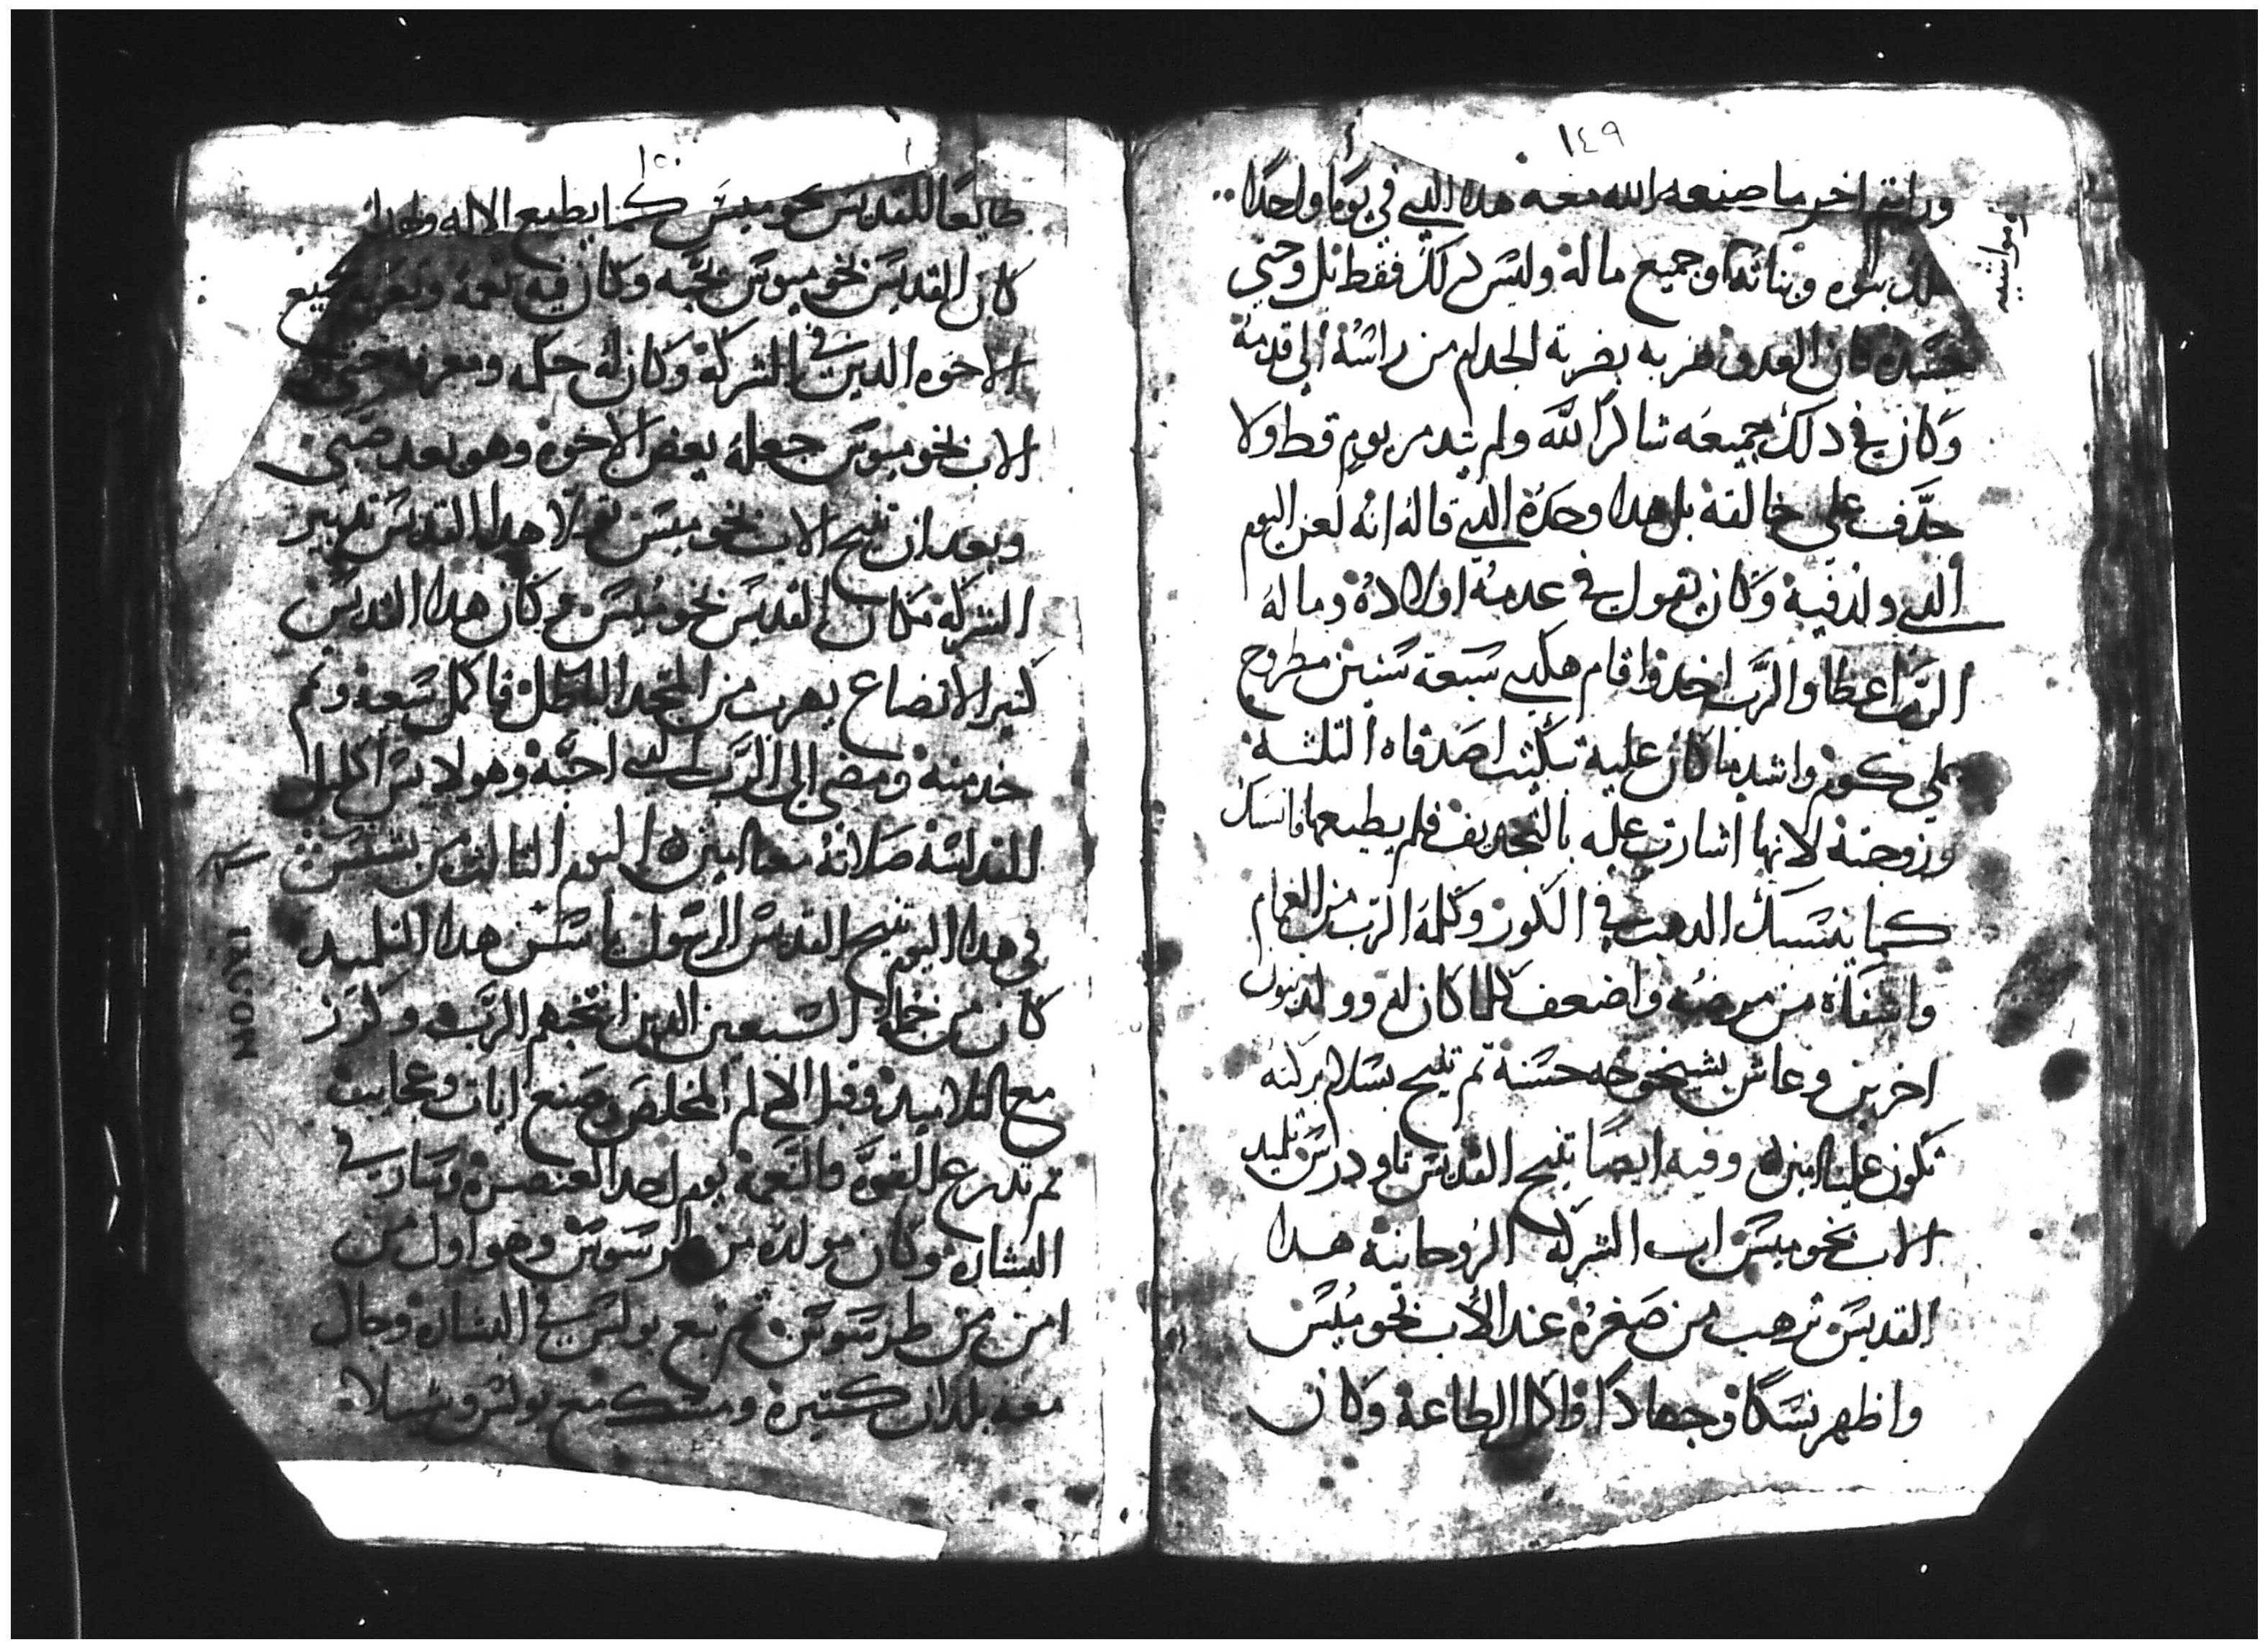 ١٤٩
ورايتم اخر ما صنعه الله معه هدا الدي في يومًا واحدًا
ومواشيه
بنوه وبناته وجميع ماله وليس دلك فقط بل وحتي
جسده فان العدو ضربه بضربة الجدام من راسه الي قدمه
وكان في دلك جميعه شاكرًا لله ولم يتدمر يوم قط ولا
جدّف علي خالقه بل هدا وحده الدي قاله انه لعن اليوم
الدي ولد فيه وكان يقول في عدمه اولاده وماله
الرب اعطا والرّب اخد واقام هكدي سبعة سنين مطروح
علي كوم واشد ما كان عليه تبكيت اصدقاه التلتة
وزوجته لانها اشارت عليه بالتجديف فلم يطيعها فانسبك
كما ينسبك الدهب في الكور وكلمه الرب من الغمام
واشفاه من مرضه واضعف كلما كان له وولد بنون
اخرين وعاش بشيخوخه حسنة تم تنيح بسلام بركته
تكون علينا امين وفيه ايضًا تنيح القديس تاودرس تلميد
الاب بخوميس اب الشركه الروحانية هدا
القديس ترهب من صغره عند الاب بخوميس
واظهر نسكًا وجهادًا واكمال الطاعة وكان
١٥٠
طايعًا للقديس بخوميس كما يطيع الاله ولهدا
كان القديس بخوميوس يحبه وكان فيه نعمه وتعزيه لجميع
الاخوه الدين في الشركة وكان له حكمه ومعرفه حتي ان
الاب بخوميوس جعله يعض الاخوه وهو بعد صبي
وبعد ان تنيح الاب بخوميس تولا هدا القديس تدبير
الشركه مكان القديس بخوميس وكان هدا القديس
كتير الاتضاع يهرب من المجد الباطل فاكمل سعيه وتم
خدمته ومضي الي الرّب الدي احبّه وهو لابس اكليل
القداسة صلاته معنا امين اليوم التالت من بشنس
في هدا اليوم تنيح القديس الرسول ياسن هدا التلميد
كان من جملة السبعين الدين انتخبهم الرّب وكرز
مع التلاميد وقبل الام المخلص وصنع ايات وعجايب
تم تدرع القوّه والنعمة يوم احد العنصرة وسار في
البشاره وكان مولده من طرسوس وهو اول من
امن من طرسوس تم تبع بولس في البشاره وجال
معه بلدان كتيرة ومسك مع بولس وسيلا